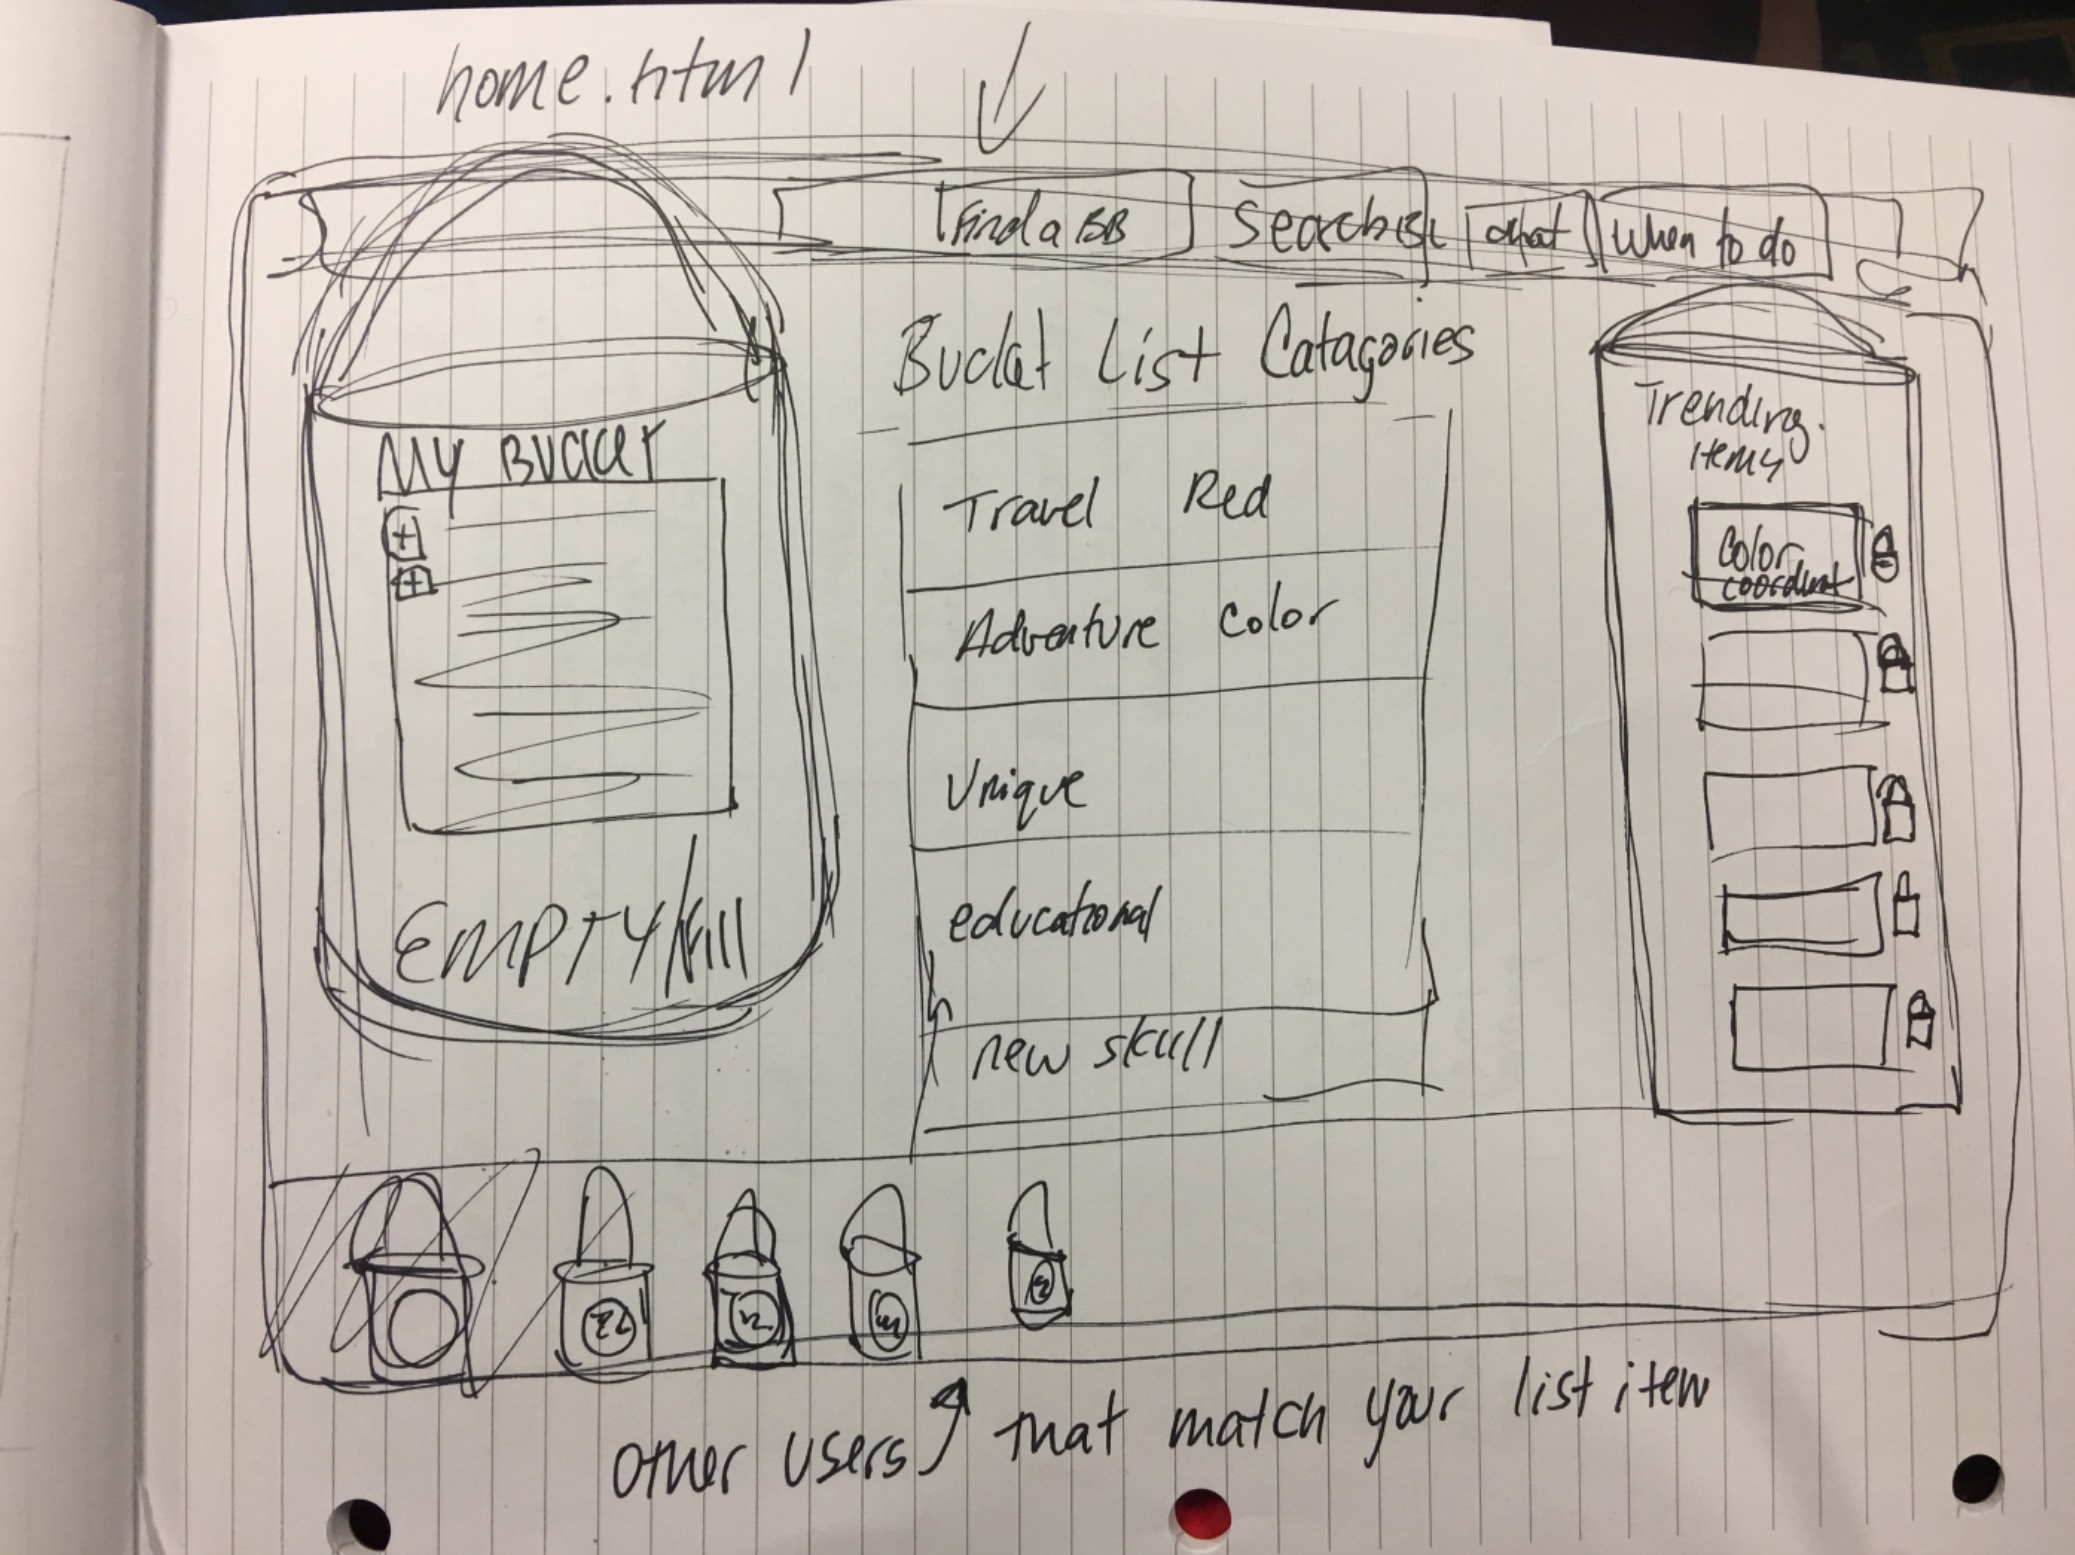 home.html
Find a BB
Search BL
chat
When to do
Bucket List Catagories
My Bucket
+
+
EMPTY/fill
Travel Red
Adventure Color
Unique
educational
new skull
Trending
items
Color
coordinat
other users that match your list item